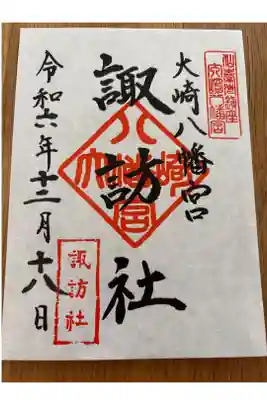 大崎八幡宮
諏訪社
令和六年十二月十八日
諏訪社
大崎八幡宮